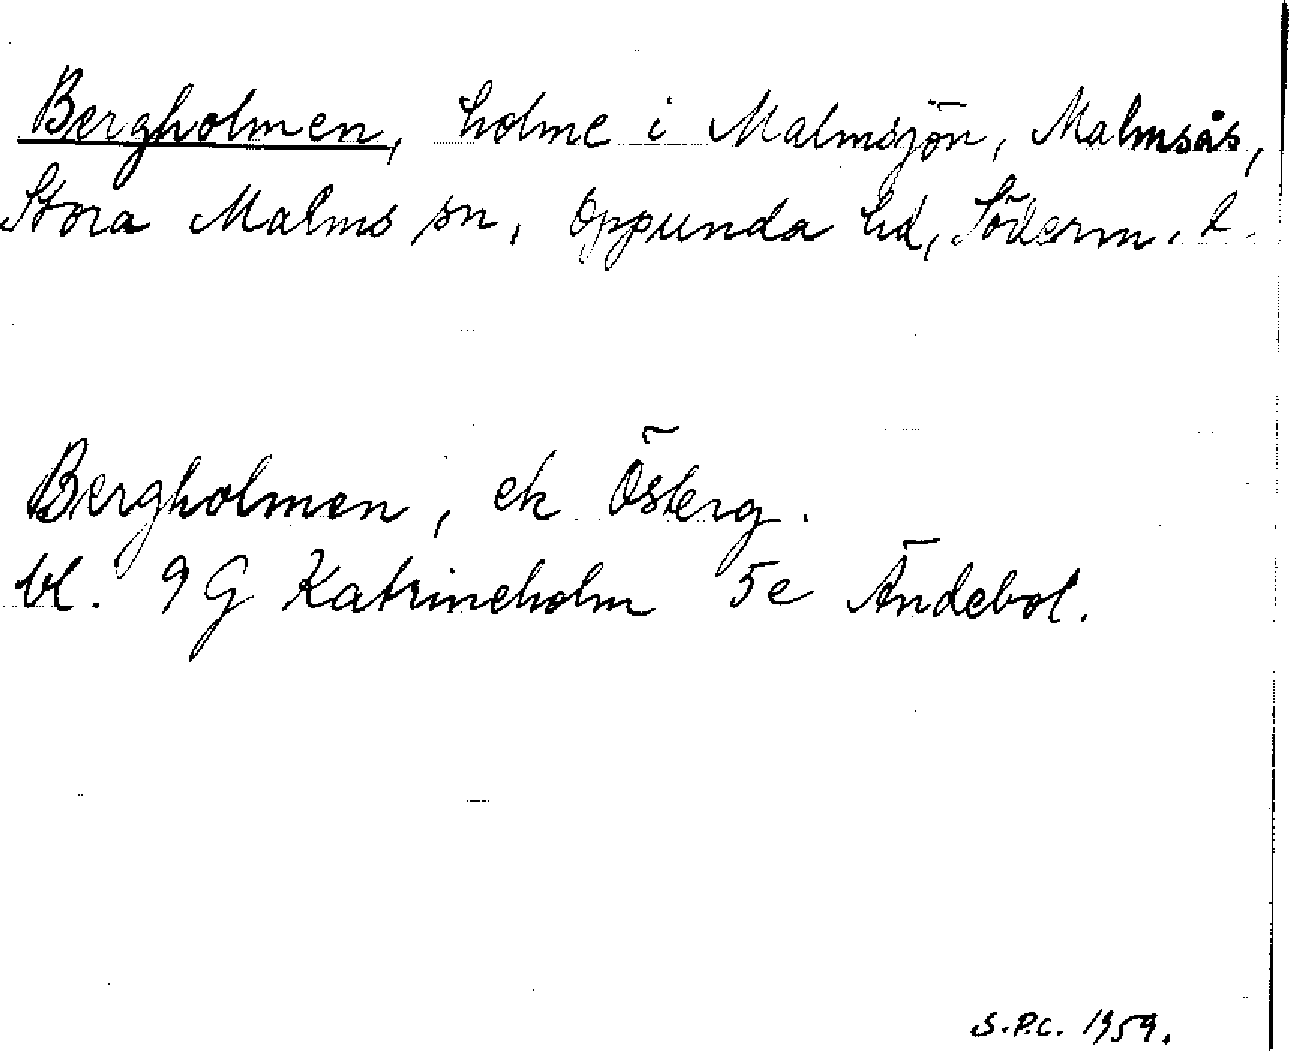 Bergholmen, holme i Malmsjön, Malmsås,
Stora Malms sn, Oppunda hd, Söderm. l.
Bergholmen, ek Österg.
bl. 9 G Katrineholm 5e Ändebol.
S.P.C. 1959.